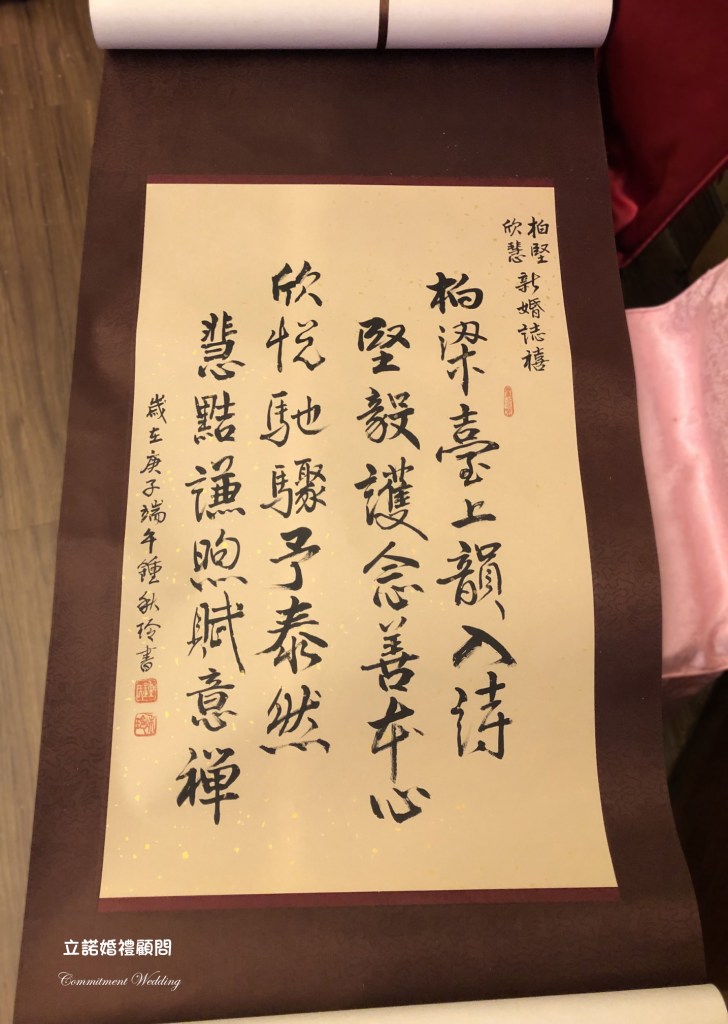 柏堅
欣慧
新婚誌禧
柏梁臺上韻入詩
堅毅護念善本心
欣悅馳驟予泰然
慧點謙煦賦意禪
歲在庚子端午鍾秋玲書
立諾婚禮顧問
Commitment Wedding